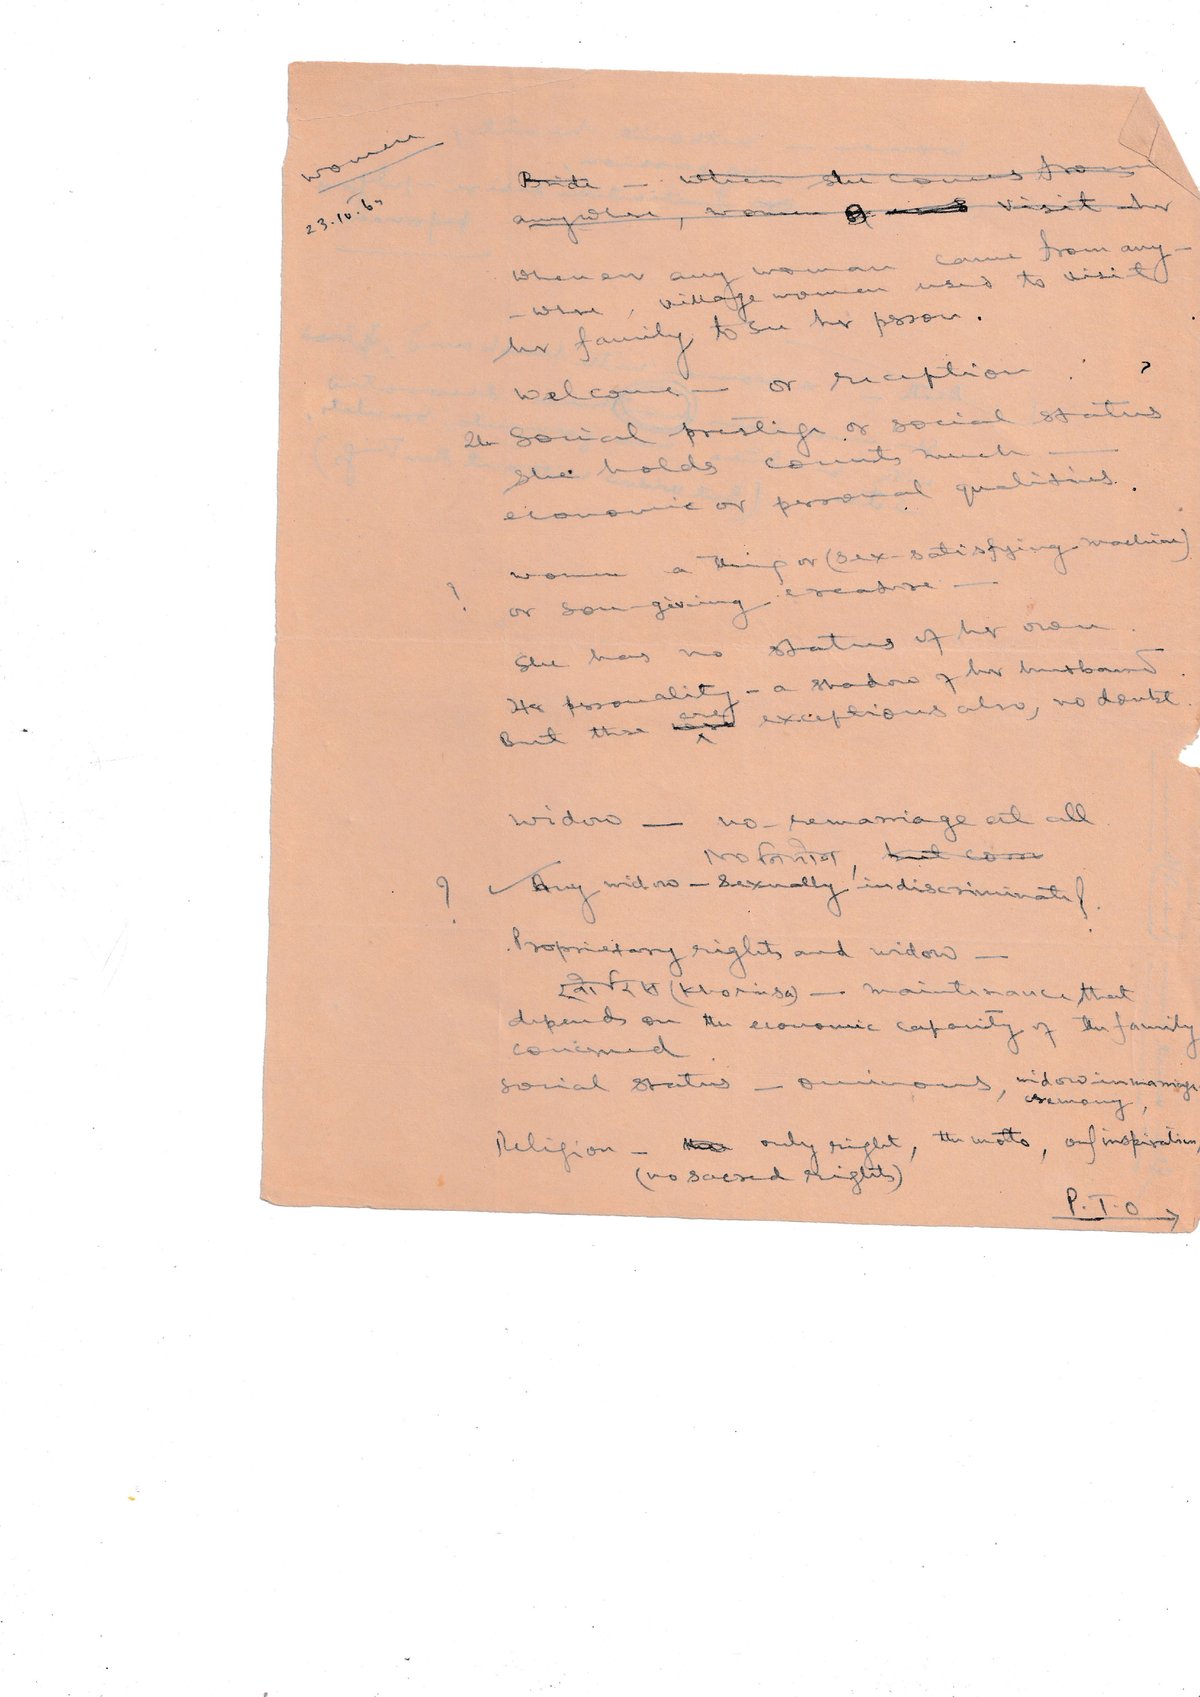 Women
23.10.6
Bride — when she comes from
anywhere, women visit her
Whenever any woman came from any-
-where, village women used to visit
her family to see her person.
Welcome — or reception. ?
The social prestige or social status
she holds counts much —
economic or personal qualities.
women a thing or (sex-satisfying-machine)
? or son-giving creature —
She has no status of her own.
Her personality — a shadow of her husband.
But there are exceptions also, no doubt.
Widow — no-remarriage at all
No but com
? Any widow — sexually indiscriminate?
Proprietary rights and widow —
(Khorisa) — maintenance, that
depends on the economic capacity of the family
concerned.
Social status — ominous, widow in marriage
ceremony,
Religion — only right, the motto, only inspiration,
(no sacred rights)
P.T.O